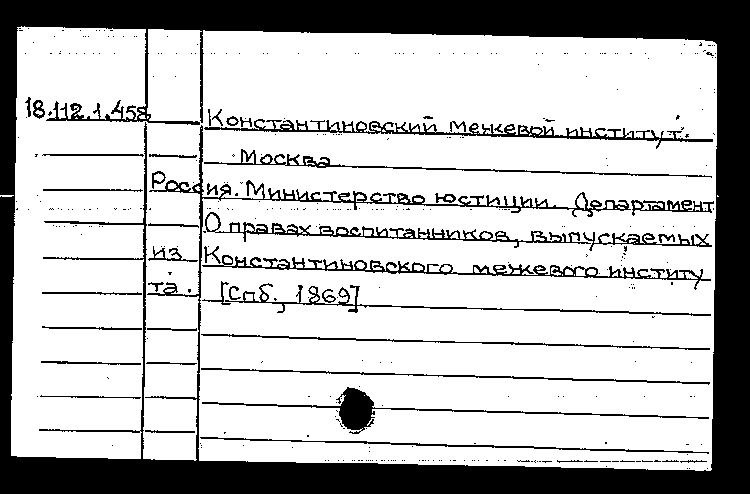 18.112.1.458 Константиновский межевой институт.
Москва
Россия. Министерство юстиции. Департамент
О правах воспитанников, выпускаемых
из Константиновского межевого институ
та. [Спб., 1869]